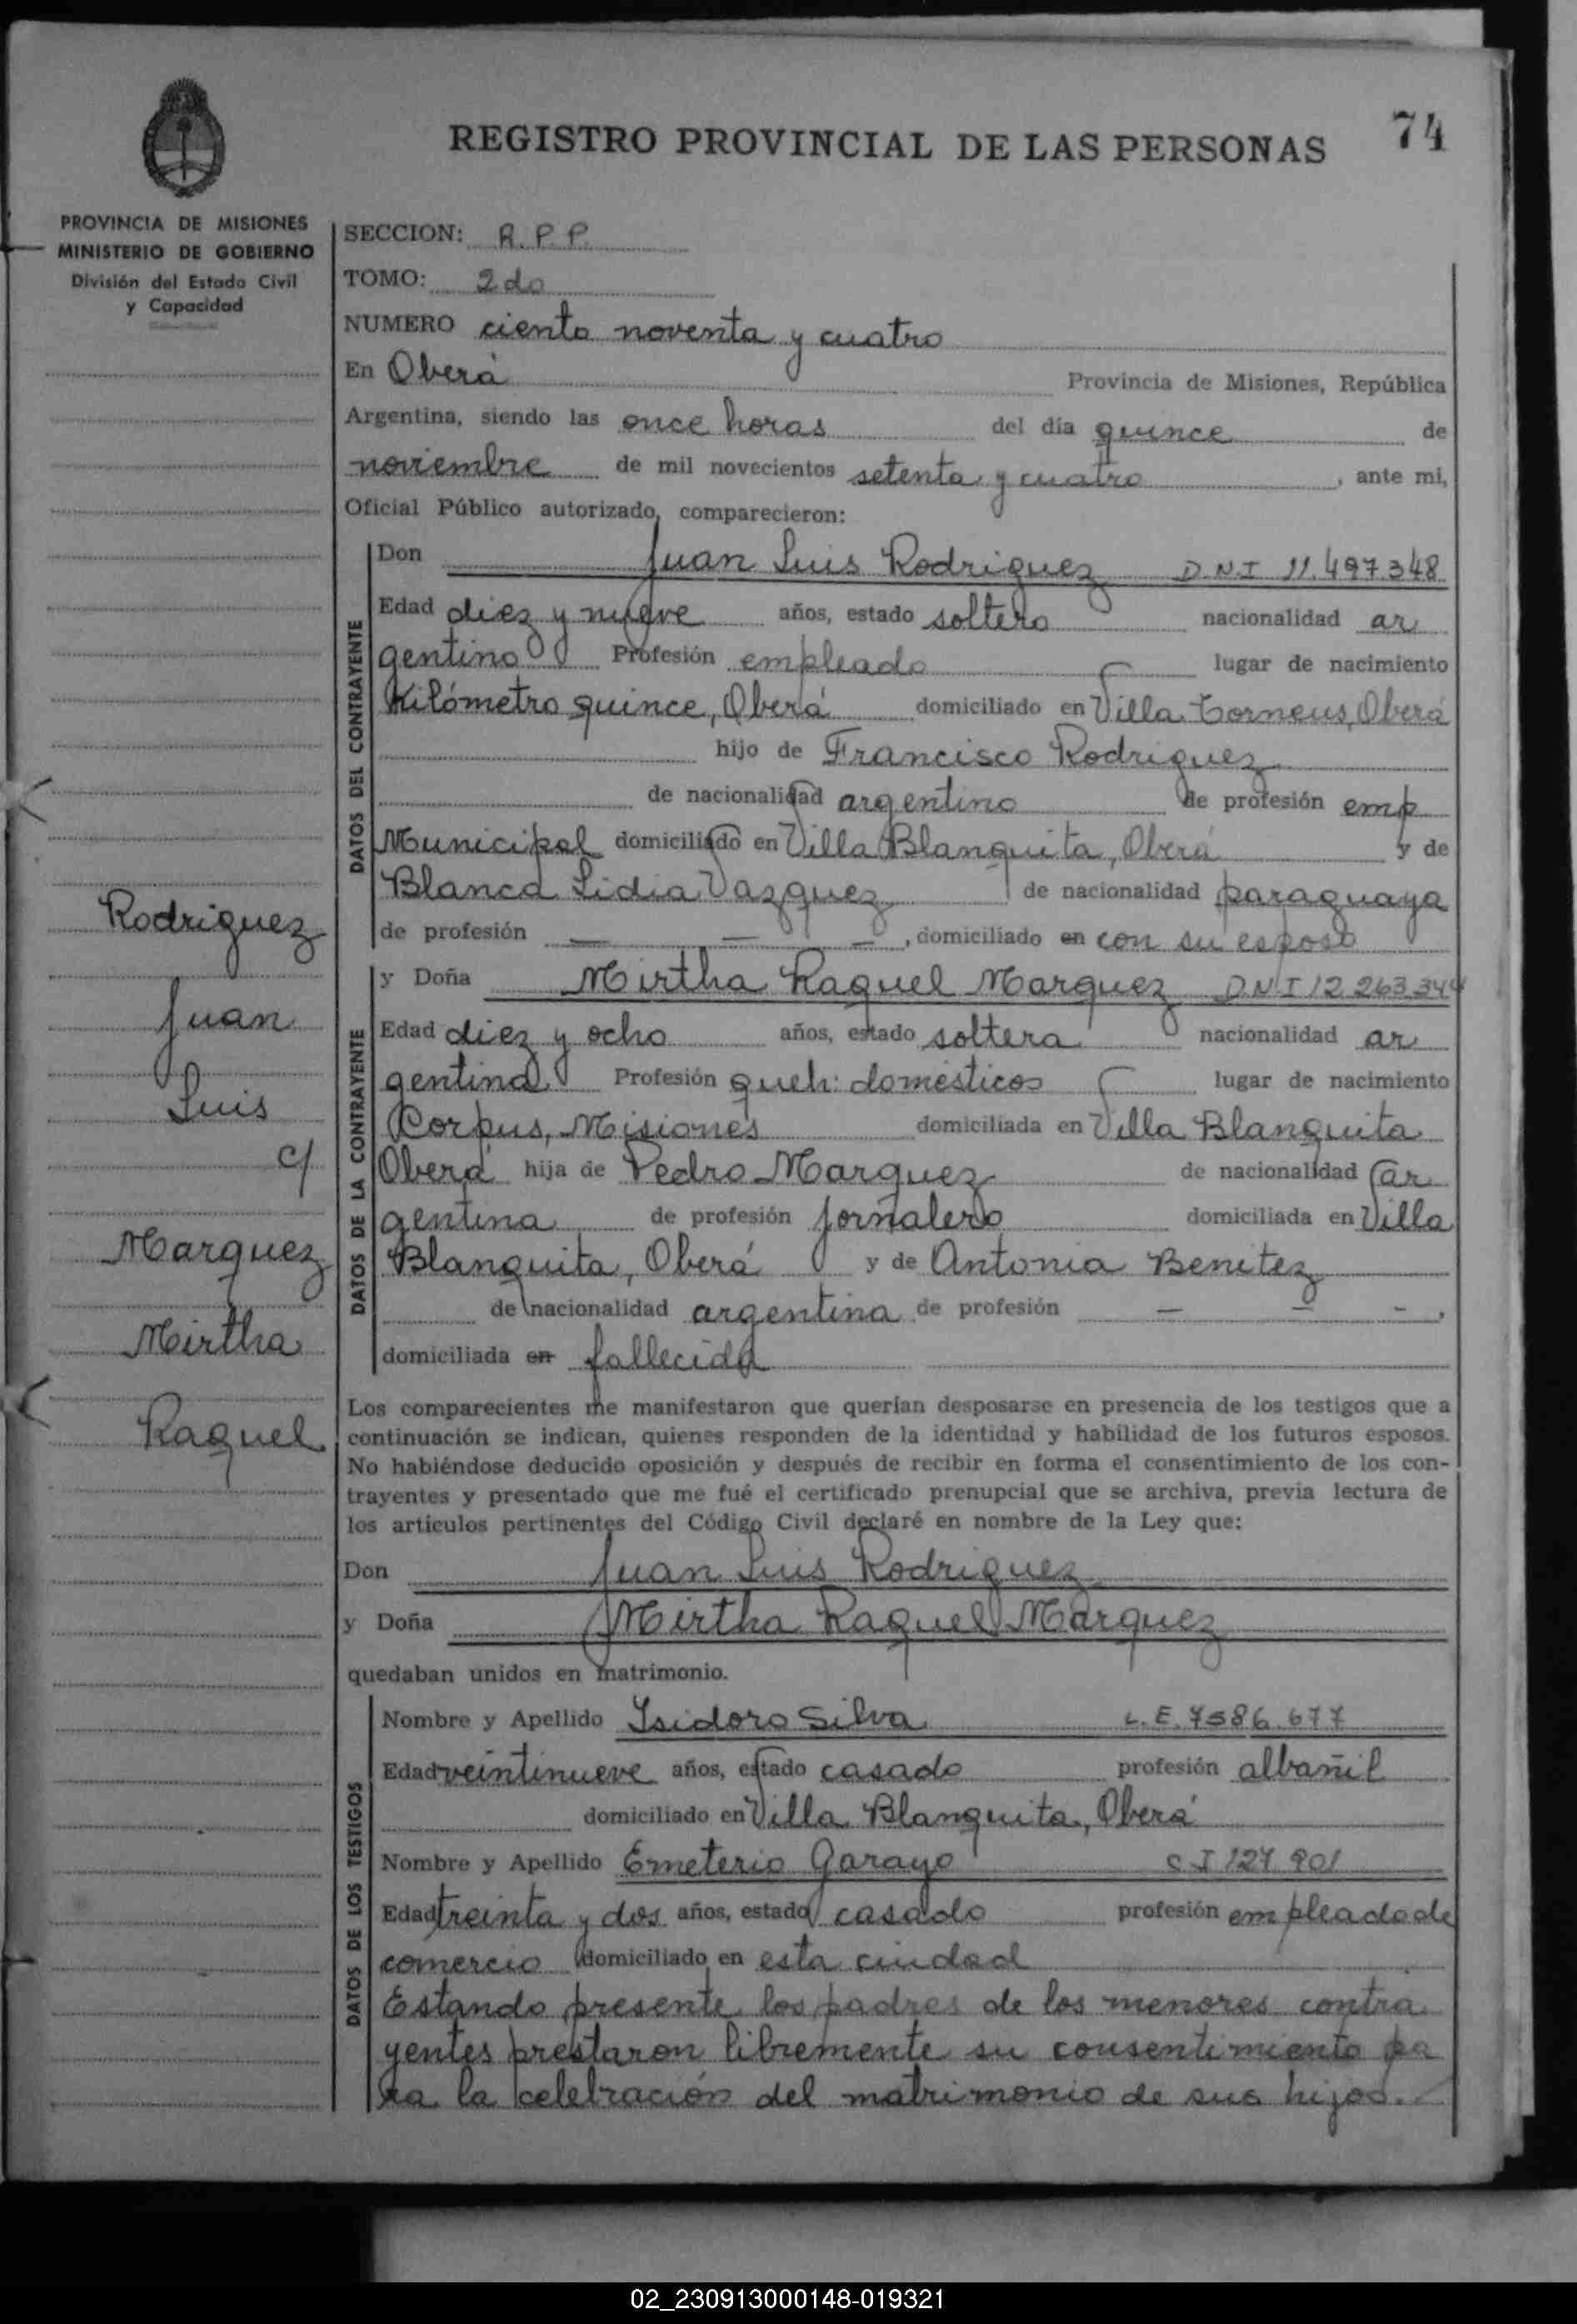 REGISTRO PROVINCIAL DE LAS PERSONAS 74
PROVINCIA DE MISIONES
MINISTERIO DE GOBIERNO
División del Estado Civil
y Capacidad
SECCION: R. P. P.
TOMO: 2do
NUMERO ciento noventa y cuatro
En Oberá Provincia de Misiones, República
Argentina, siendo las once horas del día quince de
noviembre de mil novecientos setenta y cuatro, ante mi,
Oficial Público autorizado, comparecieron:
DATOS DEL CONTRAYENTE
Don Juan Luis Rodriguez D.N.I 11.497.348
Edad diez y nueve años, estado soltero nacionalidad ar
gentino Profesión empleado lugar de nacimiento
Kilómetro quince, Oberá domiciliado en Villa Torneus, Oberá
hijo de Francisco Rodriguez
de nacionalidad argentino de profesión emp
Municipal domiciliado en Villa Blanquita, Oberá y de
Blanca Lidia Vazquez de nacionalidad paraguaya
de profesión — — —, domiciliado en con su esposo
DATOS DE LA CONTRAYENTE
y Doña Mirtha Raquel Marquez D.N.I 12.263.344
Edad diez y ocho años, estado soltera nacionalidad ar
gentina Profesión queh: domésticos lugar de nacimiento
Corpus, Misiones domiciliada en Villa Blanquita
Oberá hija de Pedro Marquez de nacionalidad ar
gentina de profesión jornalero domiciliada en Villa
Blanquita, Oberá y de Antonia Benitez
de nacionalidad argentina de profesión — — —,
domiciliada en fallecida
Rodriguez
Juan
Luis
c/
Marquez
Mirtha
Raquel
Los comparecientes me manifestaron que querían desposarse en presencia de los testigos que a
continuación se indican, quienes responden de la identidad y habilidad de los futuros esposos.
No habiéndose deducido oposición y después de recibir en forma el consentimiento de los con-
trayentes y presentado que me fué el certificado prenupcial que se archiva, previa lectura de
los artículos pertinentes del Código Civil declaré en nombre de la Ley que:
Don Juan Luis Rodriguez
y Doña Mirtha Raquel Marquez
quedaban unidos en matrimonio.
DATOS DE LOS TESTIGOS
Nombre y Apellido Isidoro Silva L.E. 7586.677
Edad veintinueve años, estado casado profesión albañil
domiciliado en Villa Blanquita, Oberá
Nombre y Apellido Emeterio Garayo C I 127 901
Edad treinta y dos años, estado casado profesión empleado de
comercio domiciliado en esta ciudad
Estando presente los padres de los menores contra
yentes prestaron libremente su consentimiento pa
ra la celebración del matrimonio de sus hijos.
02_230913000148-019321